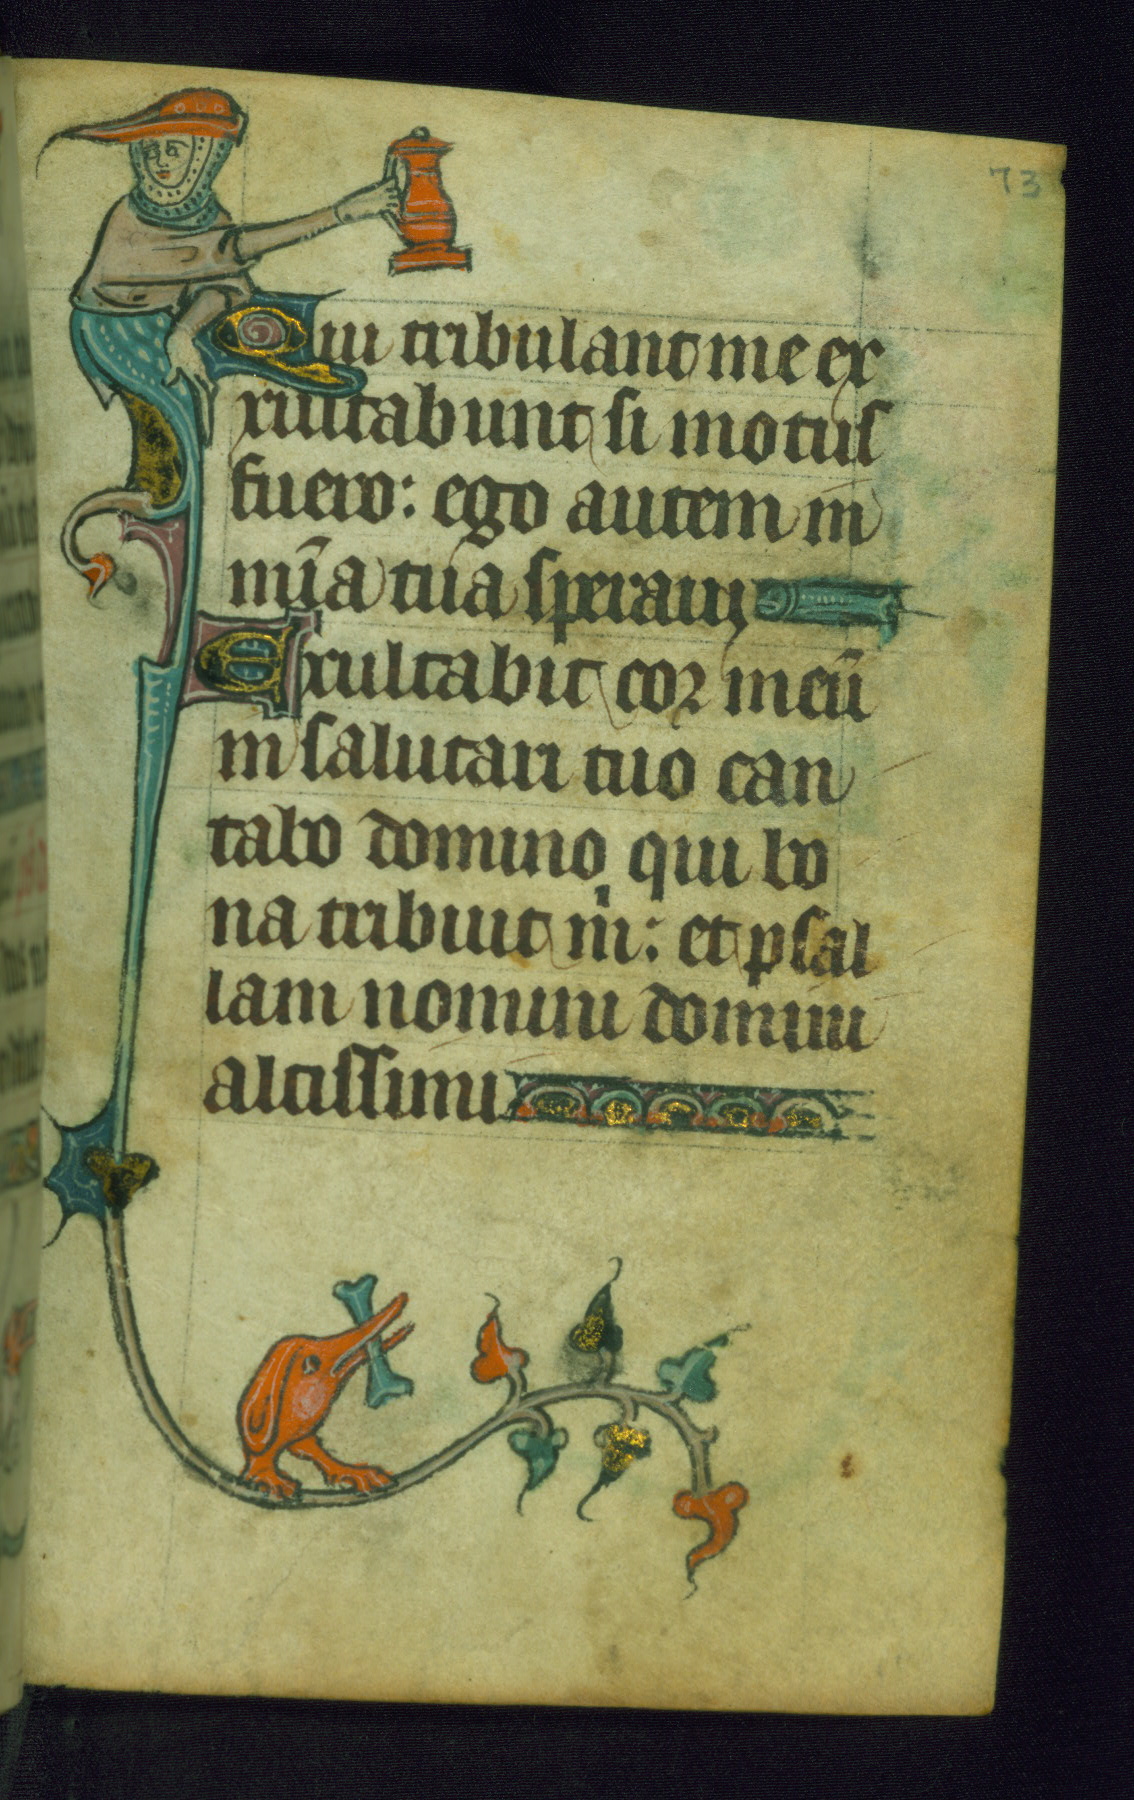 73
Qui tribulant me ex
xultabunt si motus
fuero: ego autem in
mīa tua speraui
Exultabit cor meū
in salutari tuo can
tabo domino qui bo
na tribuit m̄: et psal
lam nomini domini
altissimi